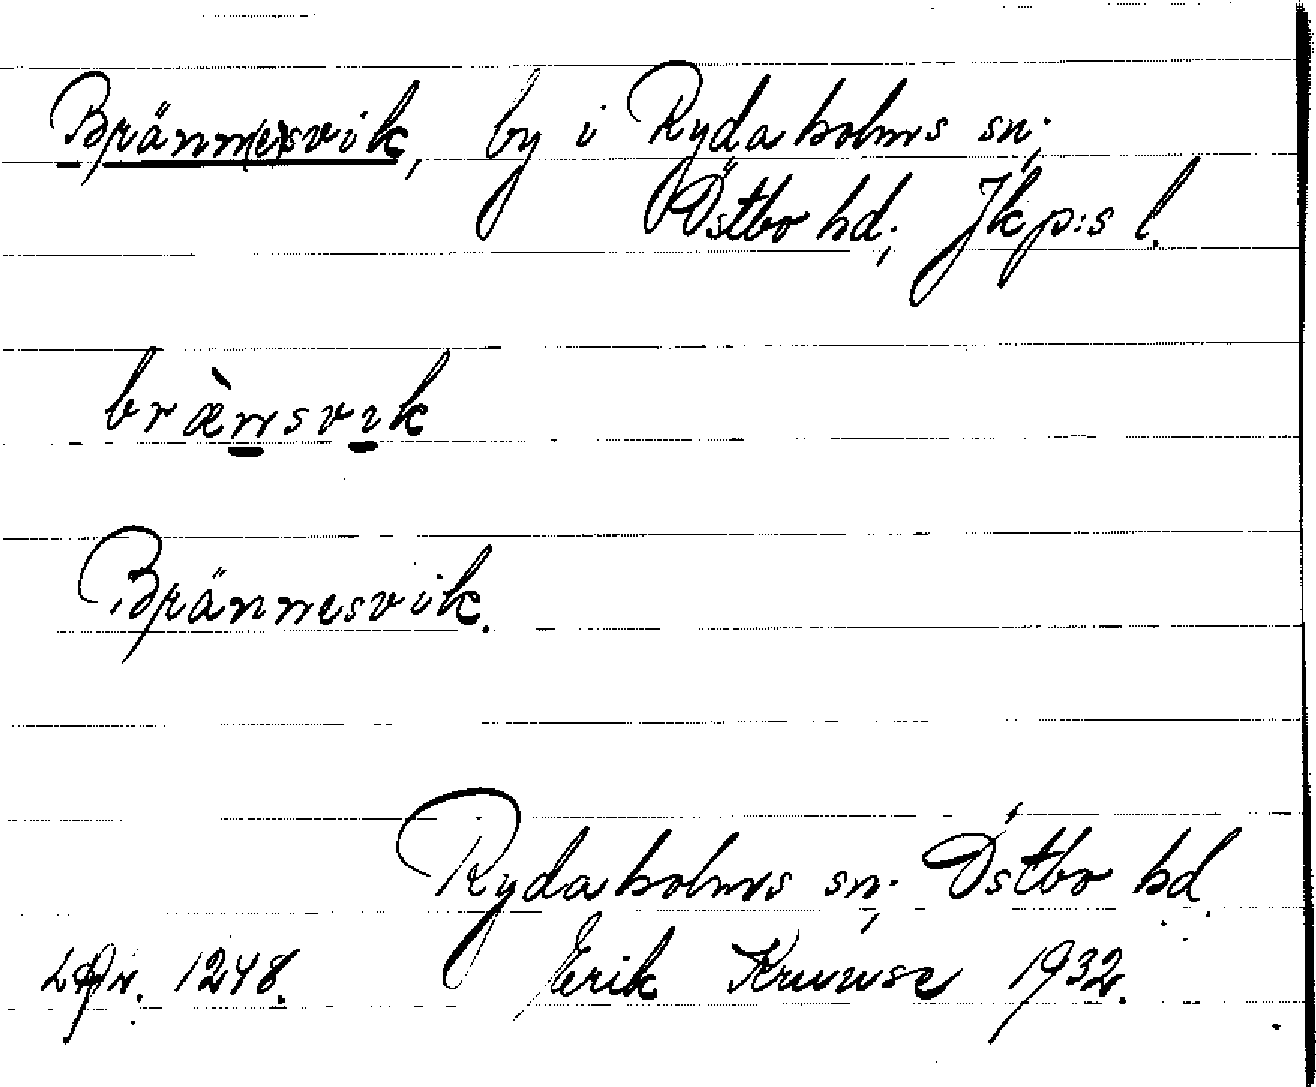 Bränn(e)svik, by i Rydaholms sn;
Östbo hd; Jkp:s l.
bræ̀nsvik
Brännesvik.
Rydaholms sn; Östbo hd.
1248. Erik Kruuse 1932.